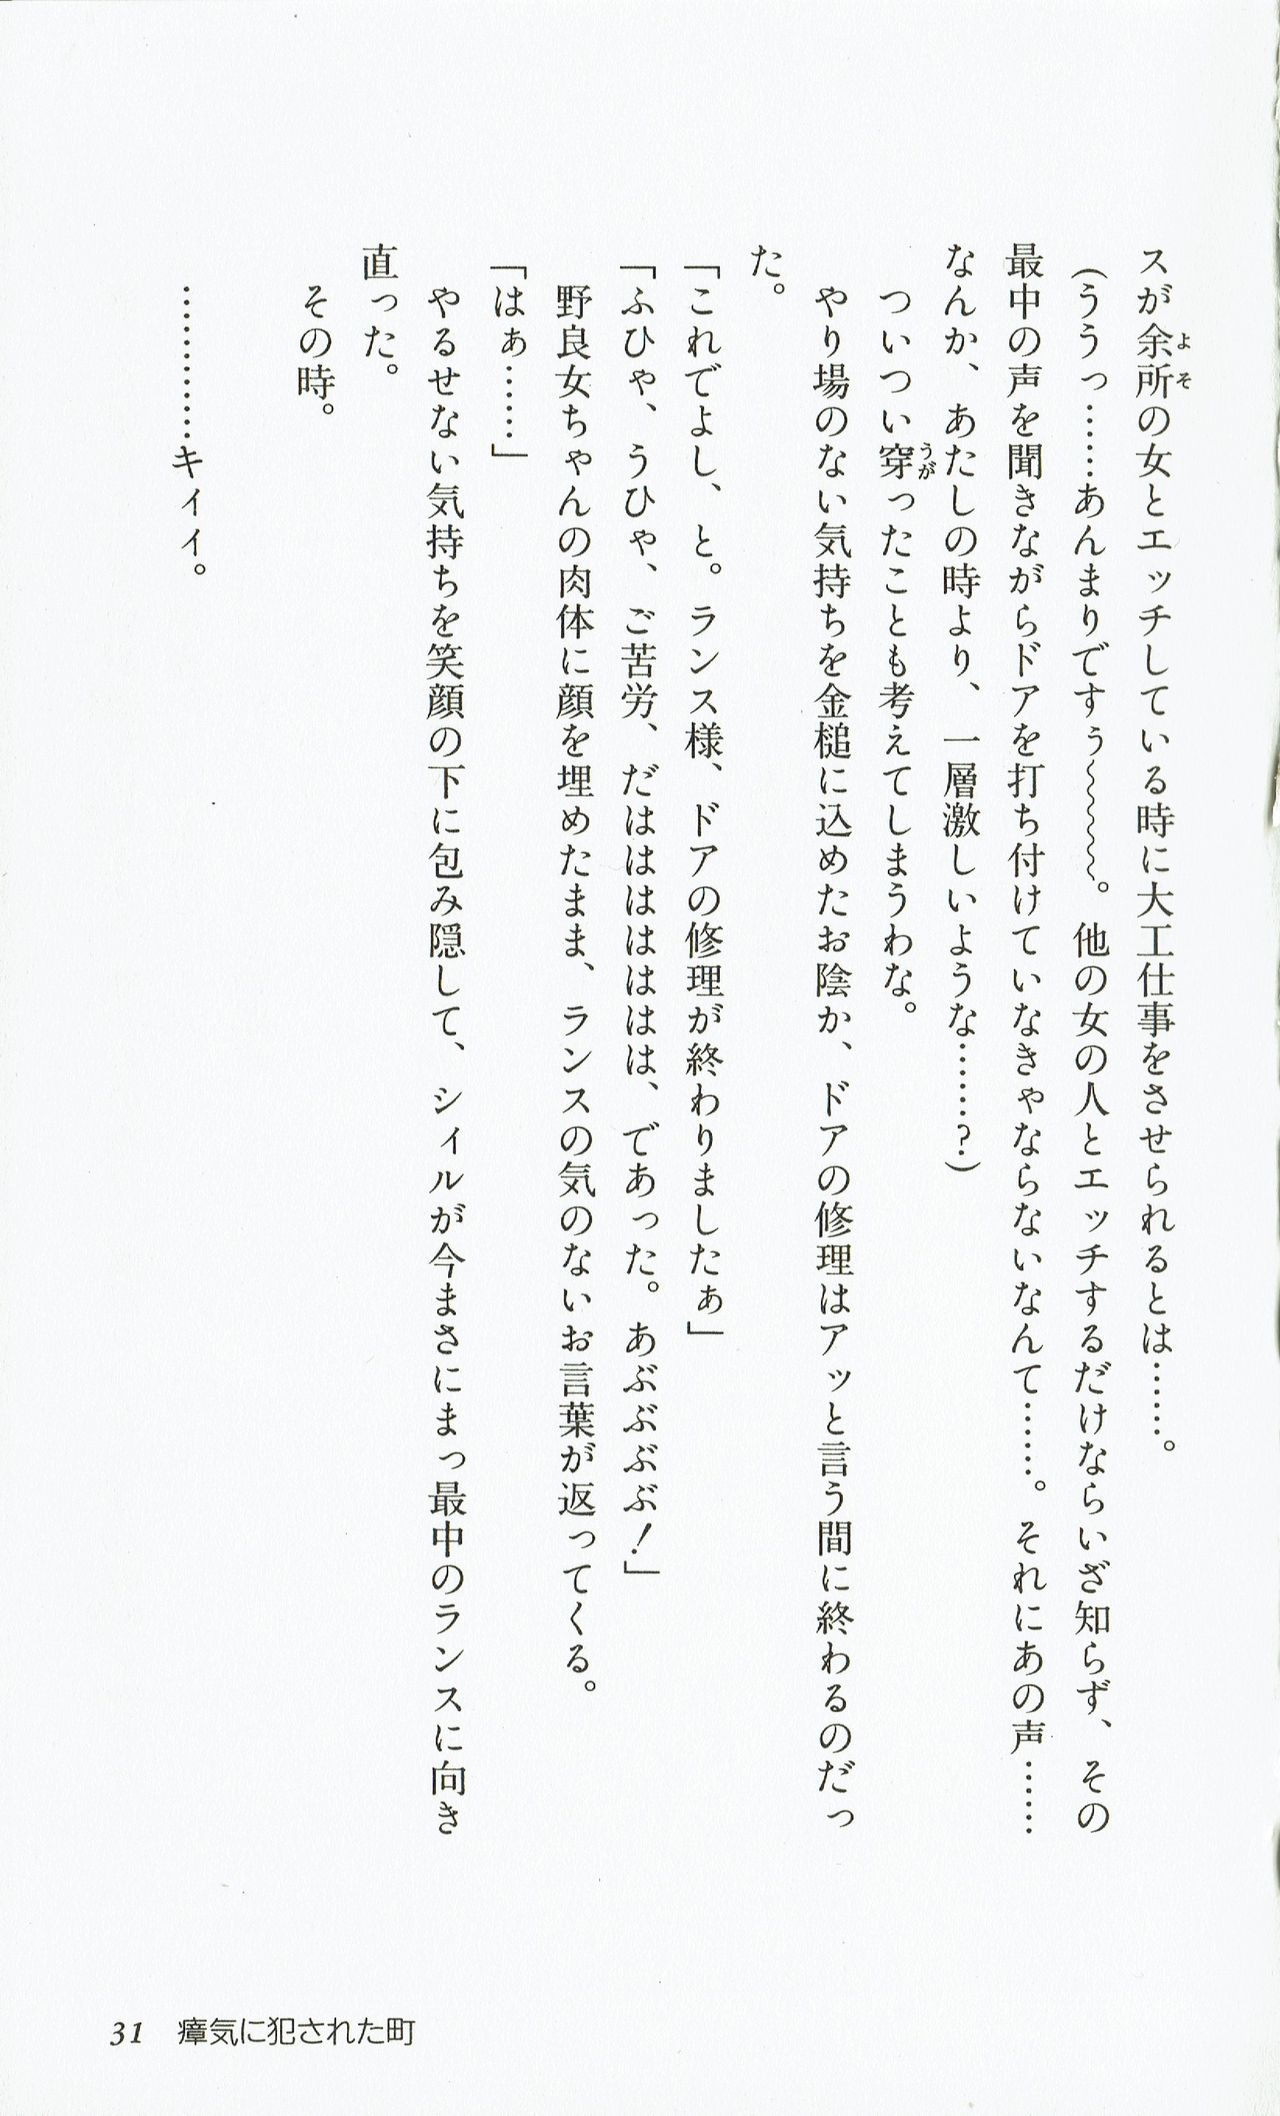 スが余所の女とエッチしている時に大工仕事をさせられるとは……。
(ううっ……あんまりですぅ〜〜〜〜。他の女の人とエッチするだけならいざ知らず、その
最中の声を聞きながらドアを打ち付けていなきゃならないなんて……。それにあの声……
なんか、あたしの時より、一層激しいような………?)
ついつい穿ったことも考えてしまうわな。
やり場のない気持ちを金槌に込めたお陰か、ドアの修理はアッと言う間に終わるのだっ
た。
「これでよし、と。ランス様、ドアの修理が終わりましたぁ」
「ふひゃ、うひゃ、ご苦労、だはははははは、であった。あぶぶぶぶ!」
野良女ちゃんの肉体に顔を埋めたまま、ランスの気のないお言葉が返ってくる。
「はぁ……」
やるせない気持ちを笑顔の下に包み隠して、シィルが今まさにまっ最中のランスに向き
直った。
その時。
…………キィィ。
31 瘴気に犯された町